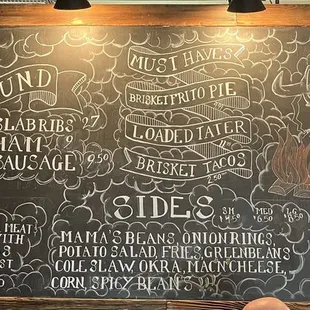 UND
SLAB RIBS 7
HAM
SAUSAGE 9.50
MEAT
WITH
S
ST
MUST HAVES
BRISKET'RITO PIE
LOADED TATER
BRISKET TACOS
SIDES
SM MED LG
MAMA'S BEANS, ONION RINGS,
POTATO SALAD, FRIES, GREEN BEANS
COLE SLAW, OKRA, MAC'N'CHEESE,
CORN, SPICY BEANS